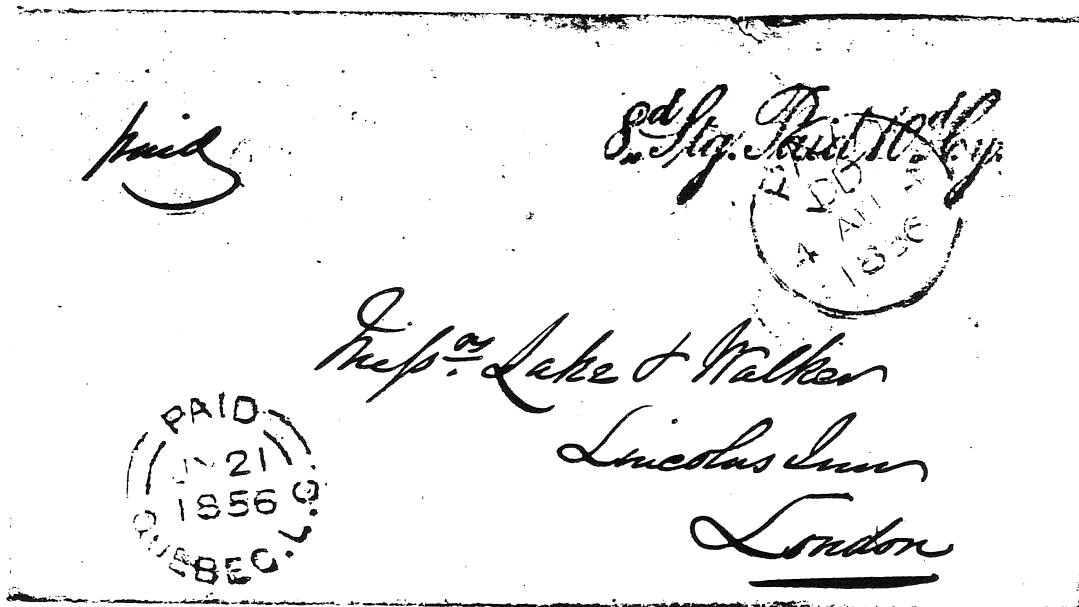 paid
8d Stg. Paid 10d Cy.
PAID
4 AU 4
1856
Messrs Lake & Walker
Lincolns Inn
London
PAID
21
1856
QUEBEC. L.C.